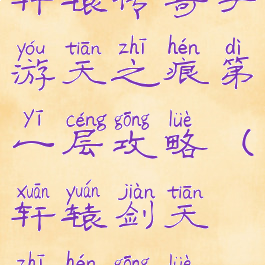 轩辕传奇手
yóu tiān zhī hén dì
游天之痕第
yī céng gōng lüè
一层攻略（
xuān yuán jiàn tiān
轩辕剑天
zhī hén gōng lüè